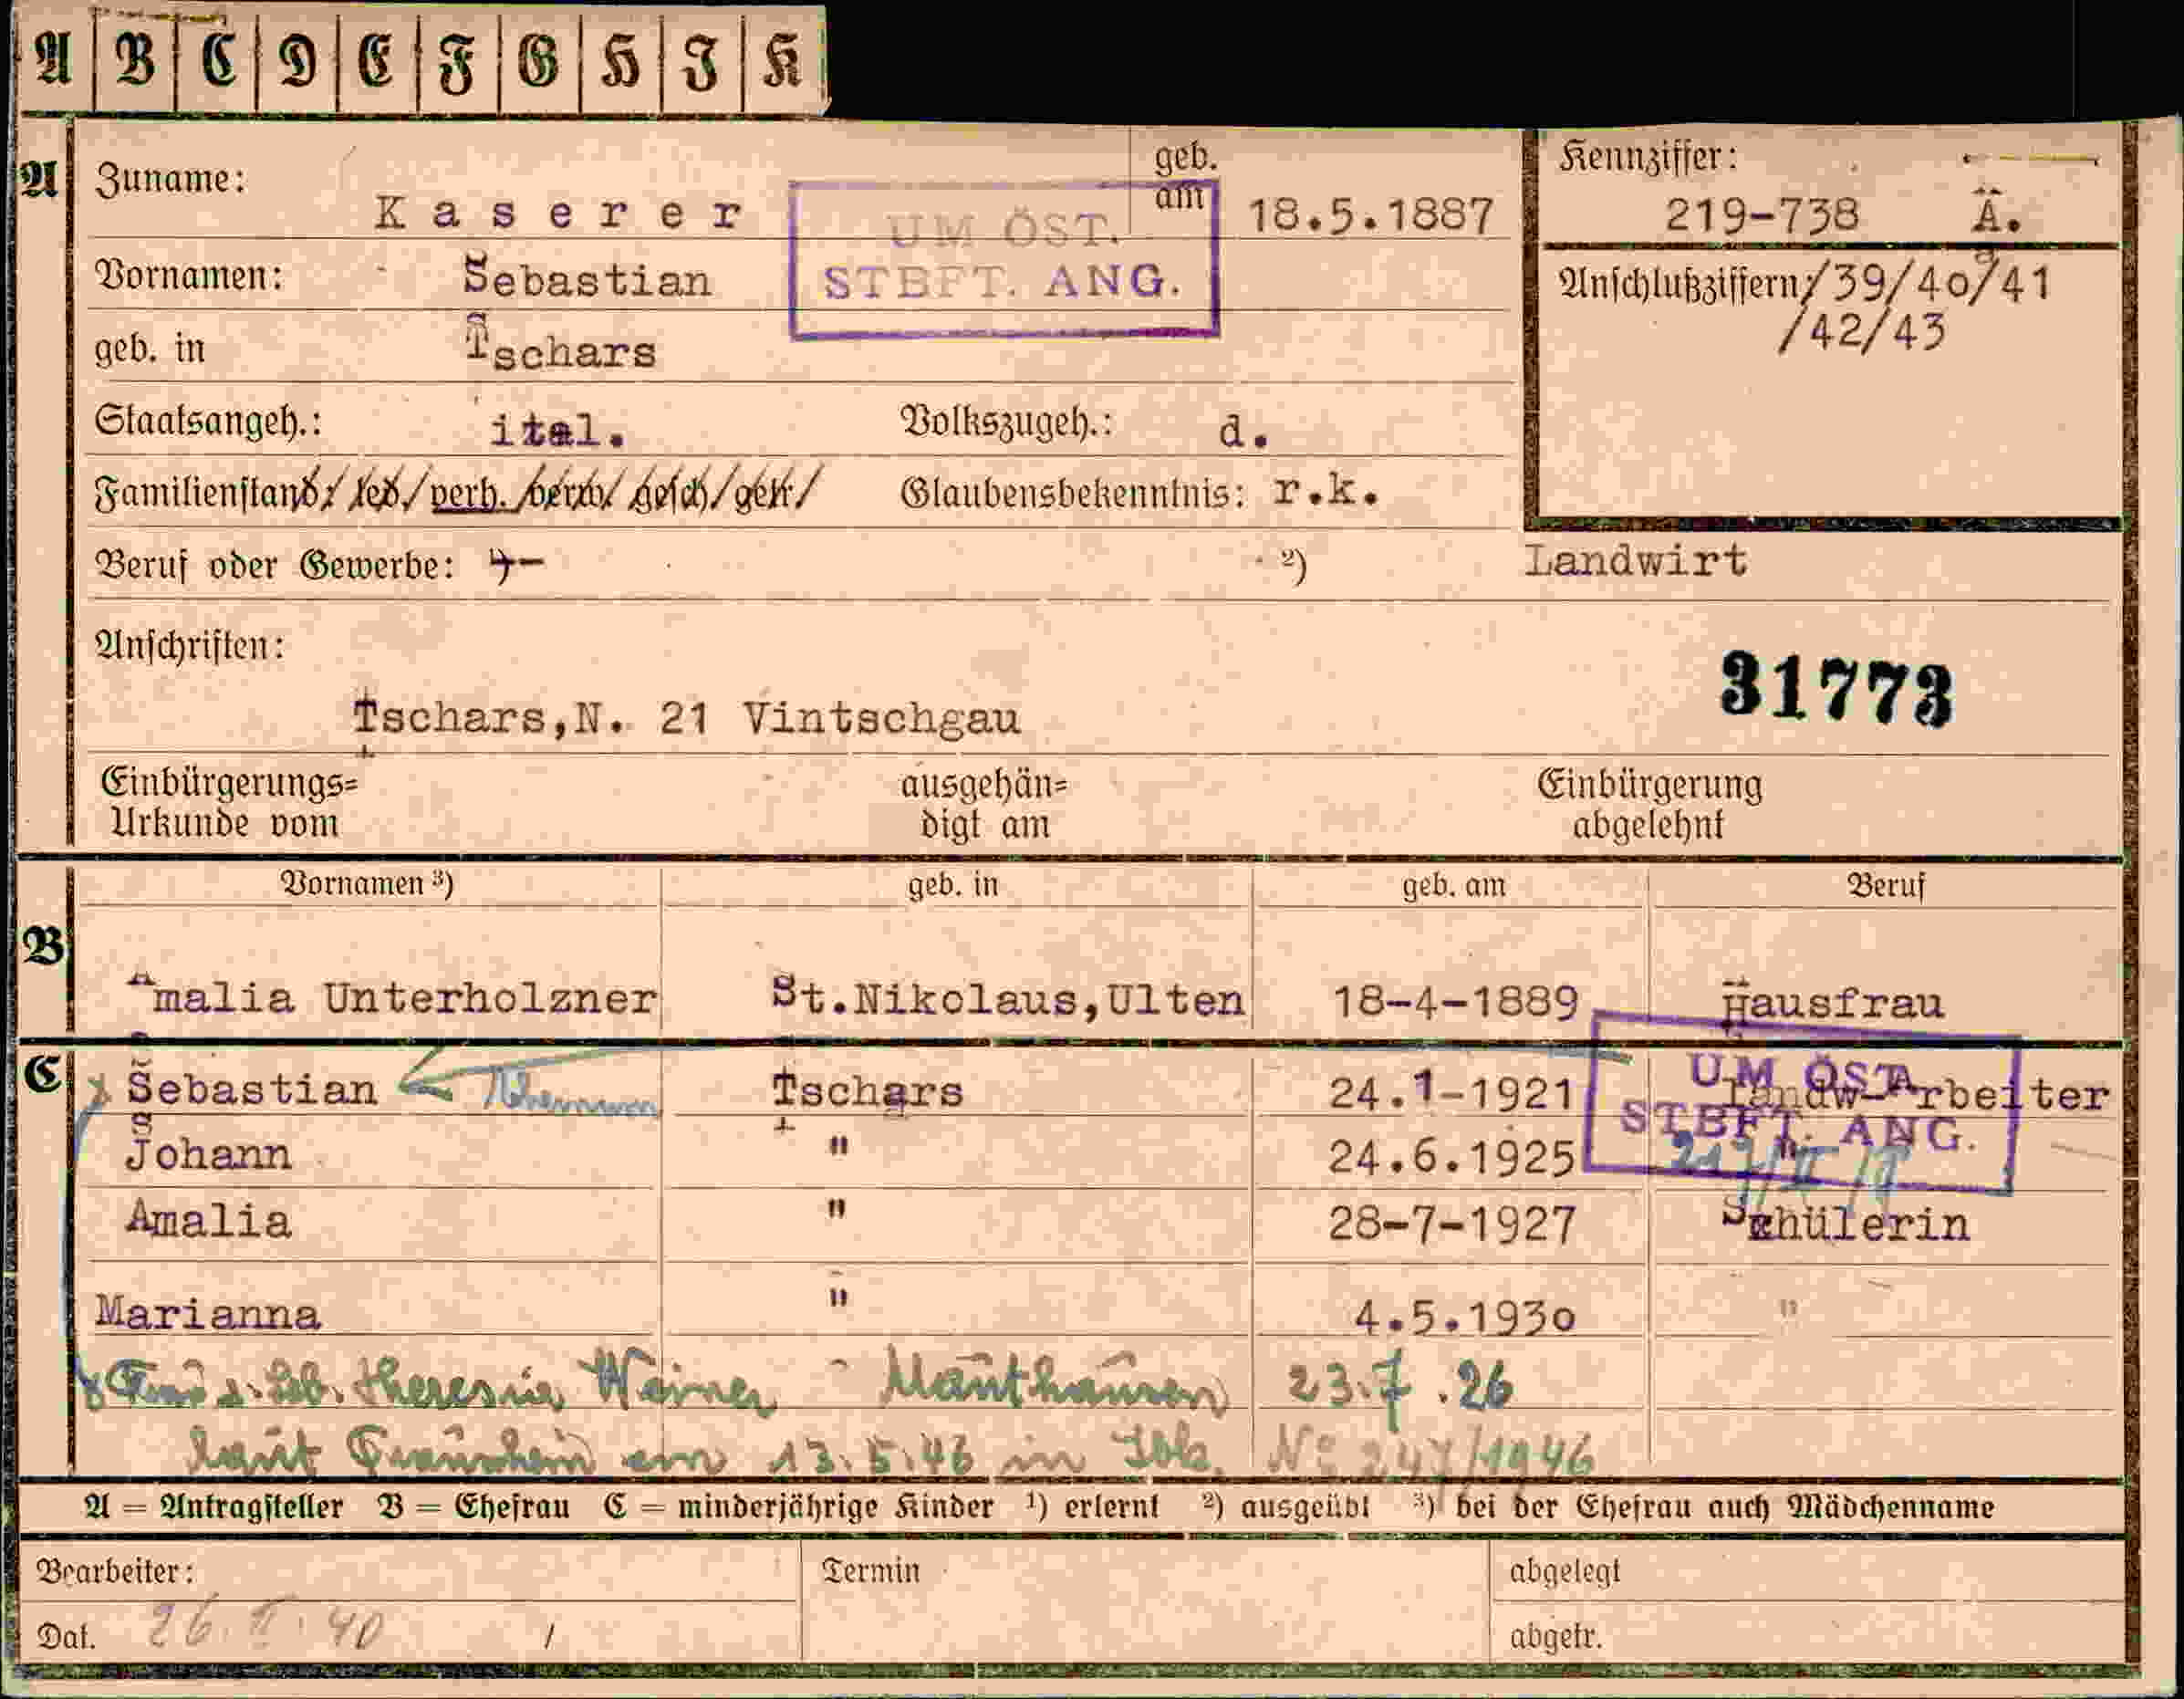 A B C D E F G H I K
A Zuname: K a s e r e r geb. am 18.5.1887
UM ÖST.
STBFT. ANG.
Kennziffer:
219-738 Ä.
Vornamen: Sebastian
Anschlußziffern:/39/40/41
/42/43
geb. in Tschars
Staatsangeh.: ital. Volkszugeh.: d.
Familienstand: led. verh. verw. gesch. getr. Glaubensbekenntnis: r.k.
Beruf oder Gewerbe: ²) Landwirt
Anschriften:
31773
Tschars,N. 21 Vintschgau
Einbürgerungs= ausgehän= Einbürgerung
Urkunde vom digt am abgelehnt
Vornamen ³) geb. in geb. am Beruf
B
Amalia Unterholzner St.Nikolaus,Ulten 18-4-1889 Hausfrau
C Sebastian Tschars 24.1-1921 Landw-Arbeiter
UM ÖST.
STBFT. ANG.
Johann " 24.6.1925 "
Amalia " 28-7-1927 Schülerin
Marianna " 4.5.1930 "
Theresia Weiner Mauthausen 23.7.26
laut Trauschein am 13.5.46 in Ibk. No 247/1946
A = Antragsteller B = Ehefrau C = minderjährige Kinder ¹) erlernt ²) ausgeübt ³) bei der Ehefrau auch Mädchenname
Bearbeiter: Termin abgelegt
Dat. 26. II. 40 abgetr.